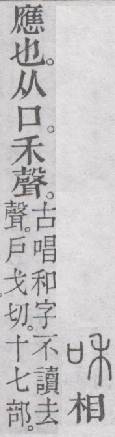 咊相
應也。从口。禾聲。
古唱和字不讀去
聲。戶戈切。十七部。